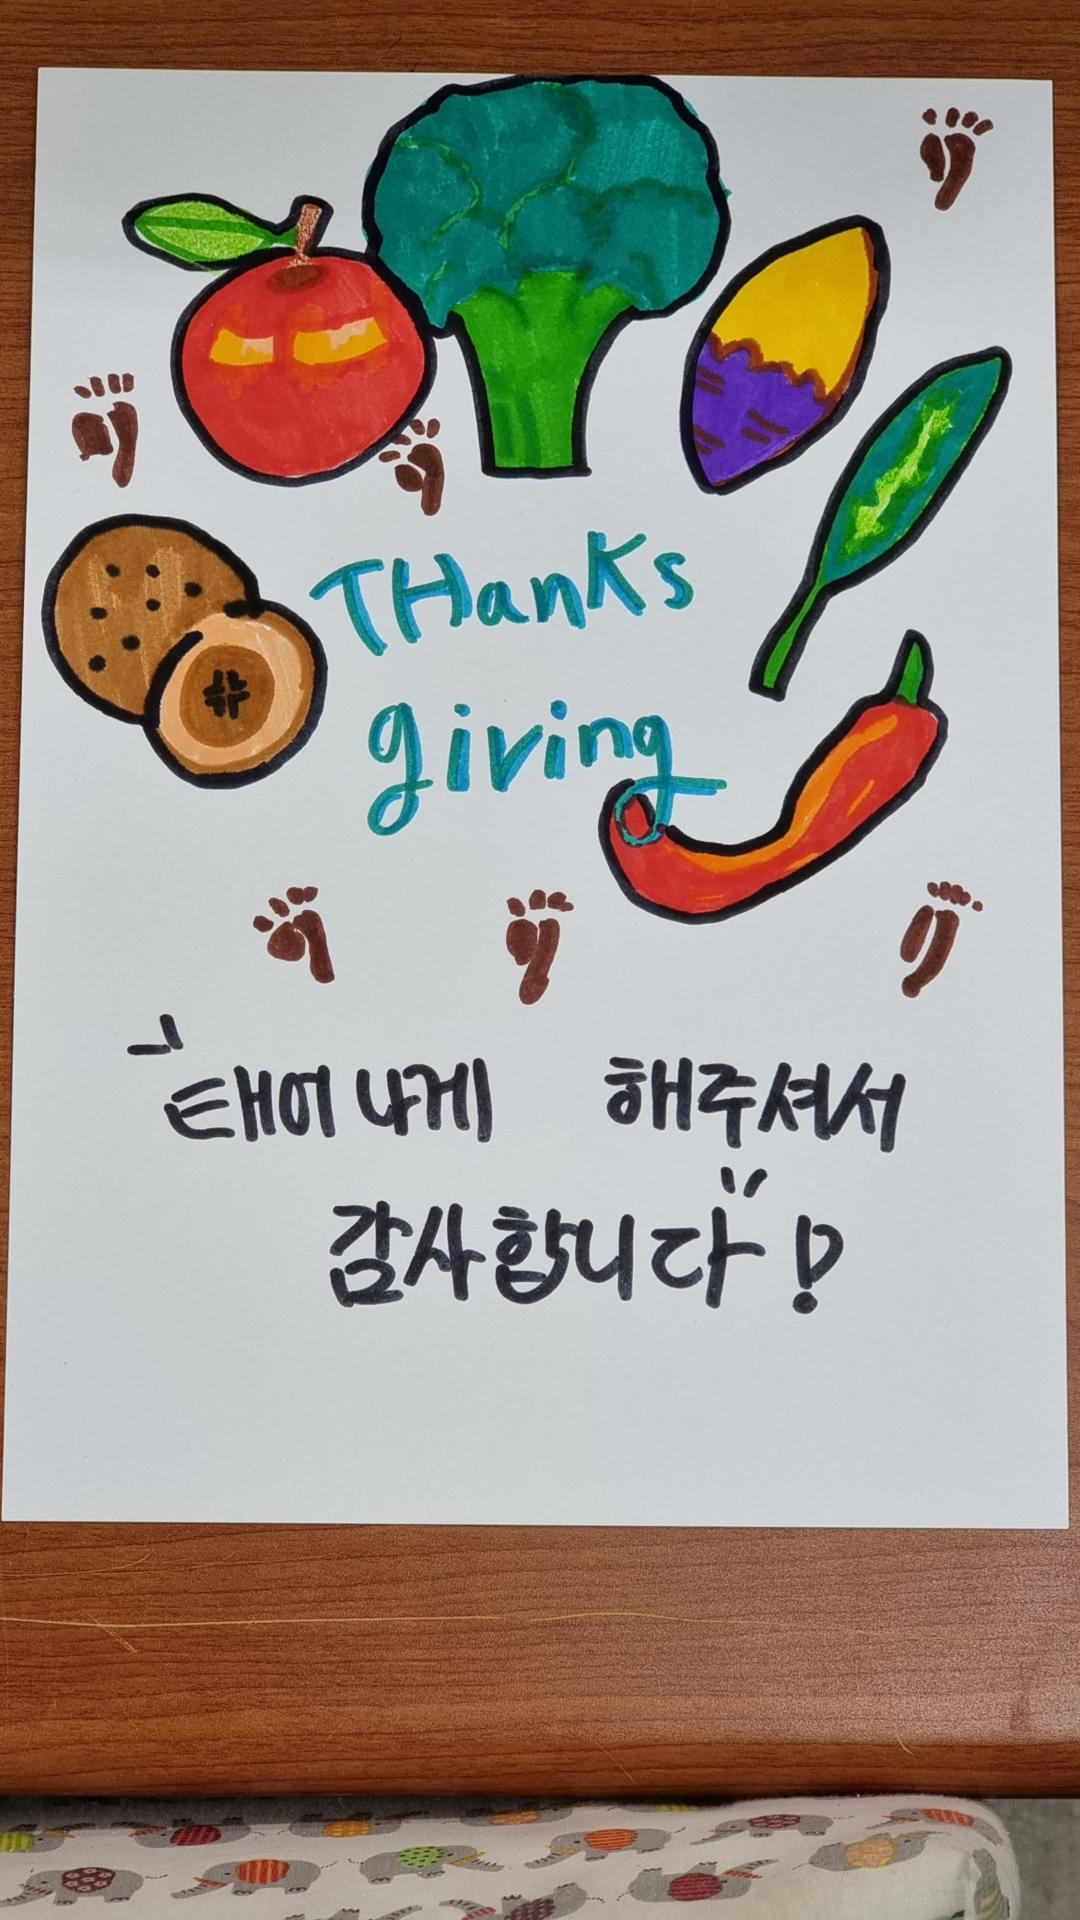 THanks
giving
"태어나게 해주셔서
감사합니다"!